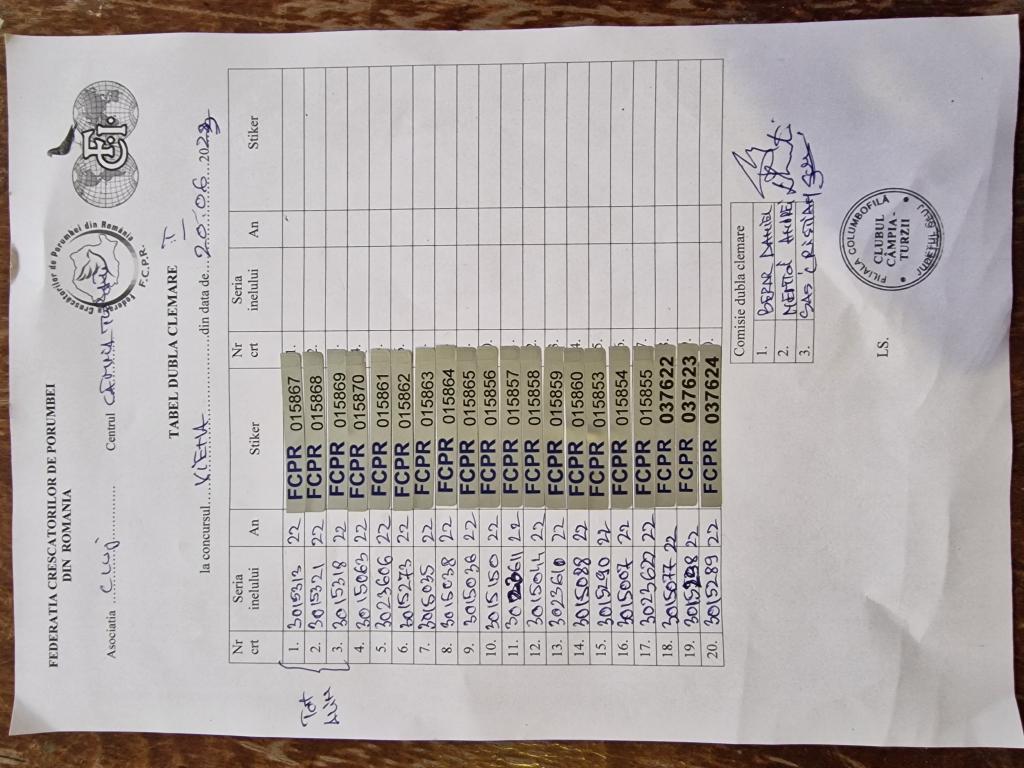 FEDERATIA CRESCATORILOR DE PORUMBEI
DIN ROMANIA
Federatia Crescatorilor de Porumbei din România
F.C.P.R.
FCI
Asociatia ...Cluj............ Centrul CÂMPIA TURZII
TABEL DUBLA CLEMARE I
la concursul....VIENA..........................din data de....20.06...2023
Nr crt Seria inelului An Stiker Nr crt Seria inelului An Stiker
1. 3015313 22 FCPR 015867
2. 3015321 22 FCPR 015868
3. 3015318 22 FCPR 015869
4. 3015063 22 FCPR 015870
5. 3023606 22 FCPR 015861
6. 3015273 22 FCPR 015862
7. 3015035 22 FCPR 015863
8. 3015038 22 FCPR 015864
9. 3015036 22 FCPR 015865
10. 3015150 22 FCPR 015856
11. 3023611 22 FCPR 015857
12. 3015044 22 FCPR 015858
13. 3023610 22 FCPR 015859
14. 3015088 22 FCPR 015860
15. 3015290 22 FCPR 015853
16. 3015007 22 FCPR 015854
17. 3023622 22 FCPR 015855
18. 3015077 22 FCPR 037622
19. 3015298 22 FCPR 037623
20. 3015289 22 FCPR 037624
Comisie dubla clemare
1. DANIEL
2. ANDREI
3. SAS CRISTIAN
LS.
FILIALA COLUMBOFILĂ
CLUBUL
CÂMPIA-
TURZII
JUDEȚUL CLUJ